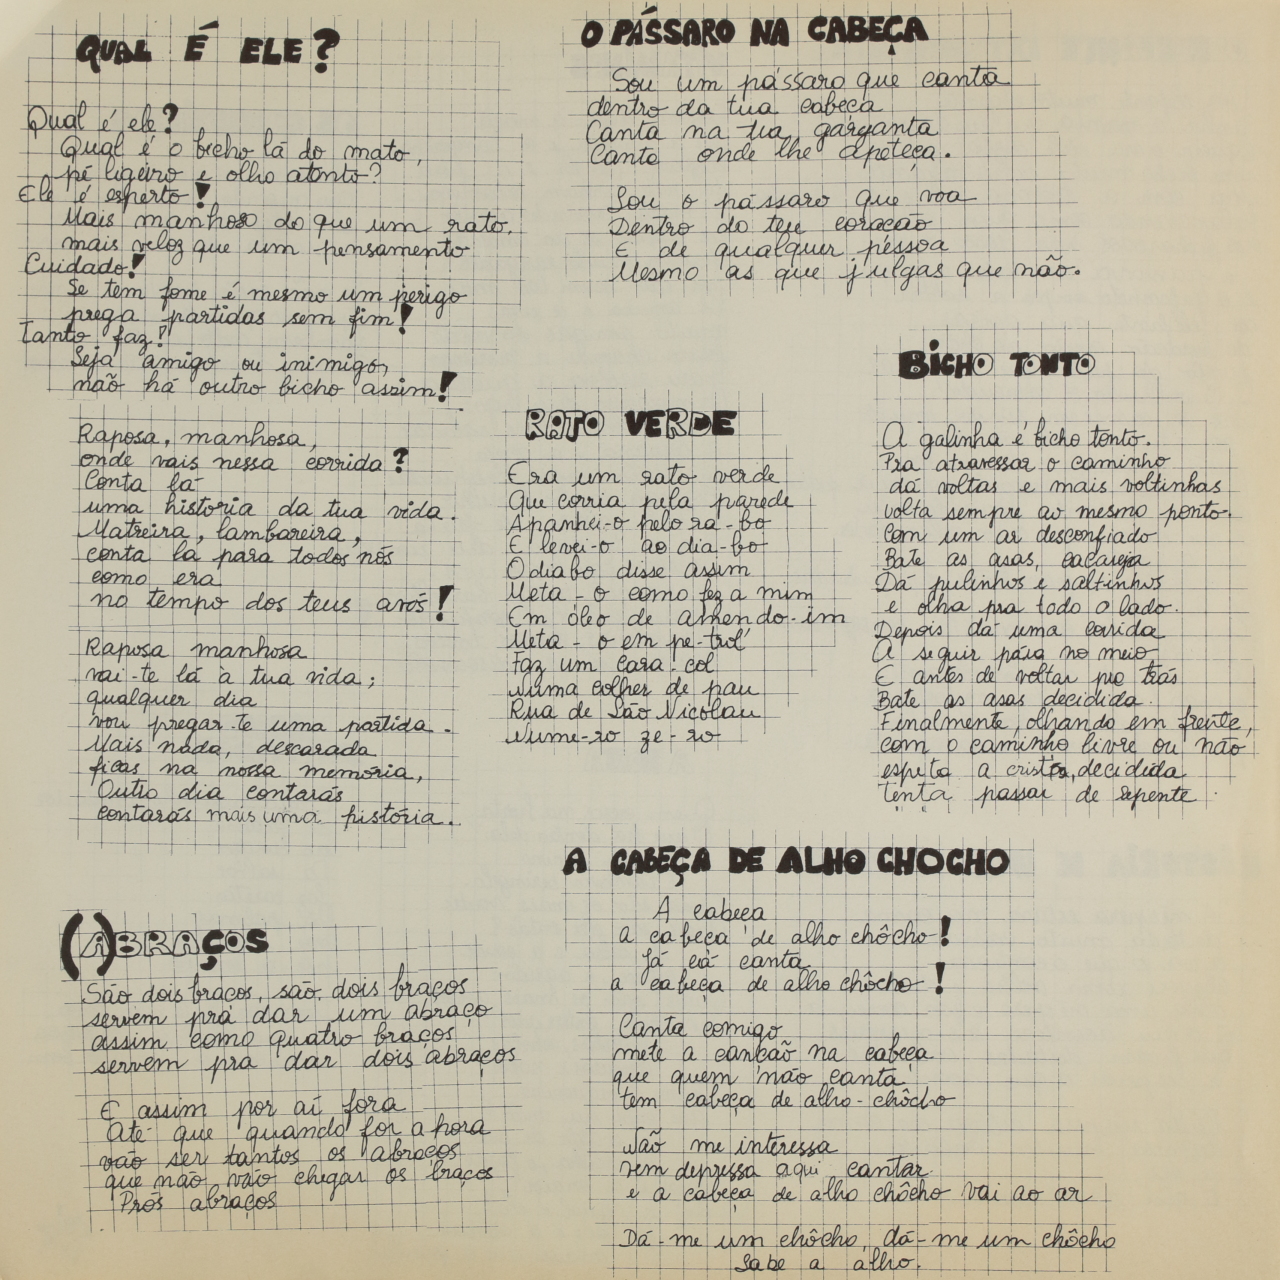 QUAL É ELE?
Qual é ele?
Qual é o bicho lá do mato,
pé ligeiro e olho atento?
Ele é esperto!
Mais manhoso do que um rato,
mais veloz que um pensamento
Cuidado!
Se tem fome é mesmo um perigo
prega partidas sem fim!
Tanto faz!
Seja amigo ou inimigo,
não há outro bicho assim!
Raposa, manhosa,
onde vais nessa corrida?
Conta lá
uma historia da tua vida.
Matreira, lambareira,
conta lá para todos nós
como era
no tempo dos teus avós!
Raposa manhosa
vai-te lá à tua vida;
qualquer dia
vou pregar-te uma partida.
Mais nada, descarada
ficas na nossa memória,
Outro dia contarás
contarás mais uma história.
(A)BRAÇOS
São dois braços, são dois braços
servem prá dar um abraço
assim como quatro braços
servem pra dar dois abraços
E assim por aí fora
Até que quando for a hora
vão ser tantos os abraços
que não vão chegar os braços
Prós abraços
O PÁSSARO NA CABEÇA
Sou um pássaro que canta
dentro da tua cabeça
Canta na tua garganta
Canta onde lhe apeteça.
Sou o pássaro que voa
Dentro do teu coração
E de qualquer pessoa
Mesmo as que julgas que não.
RATO VERDE
Era um rato verde
Que corria pela parede
Apanhei-o pelo ra-bo
E levei-o ao dia-bo
O diabo disse assim
Meta-o como fez a mim
Em óleo de amendo-im
Meta-o em pe-trol'
Faz um cara-col
Numa colher de pau
Rua de São Nicolau
Nume-ro ze-ro
BICHO TONTO
A galinha é bicho tonto.
Pra atravessar o caminho
dá voltas e mais voltinhas
volta sempre ao mesmo ponto.
Com um ar desconfiado
Bate as asas, cacareja
Dá pulinhos e saltinhos
e olha pra todo o lado.
Depois dá uma corrida
A seguir pára no meio
E antes de voltar pro trás
Bate as asas decidida.
Finalmente, olhando em frente,
com o caminho livre ou não
espeta a crista, decidida
tenta passar de repente.
A CABEÇA DE ALHO CHOCHO
A cabeça
a cabeça de alho chôcho!
Já cá canta
a cabeça de alho chôcho!
Canta comigo
mete a canção na cabeça
que quem não canta
tem cabeça de alho-chôcho
Não me interessa
vem depressa aqui cantar
e a cabeça de alho chôcho vai ao ar
Dá-me um chôcho, dá-me um chôcho
Sabe a alho.